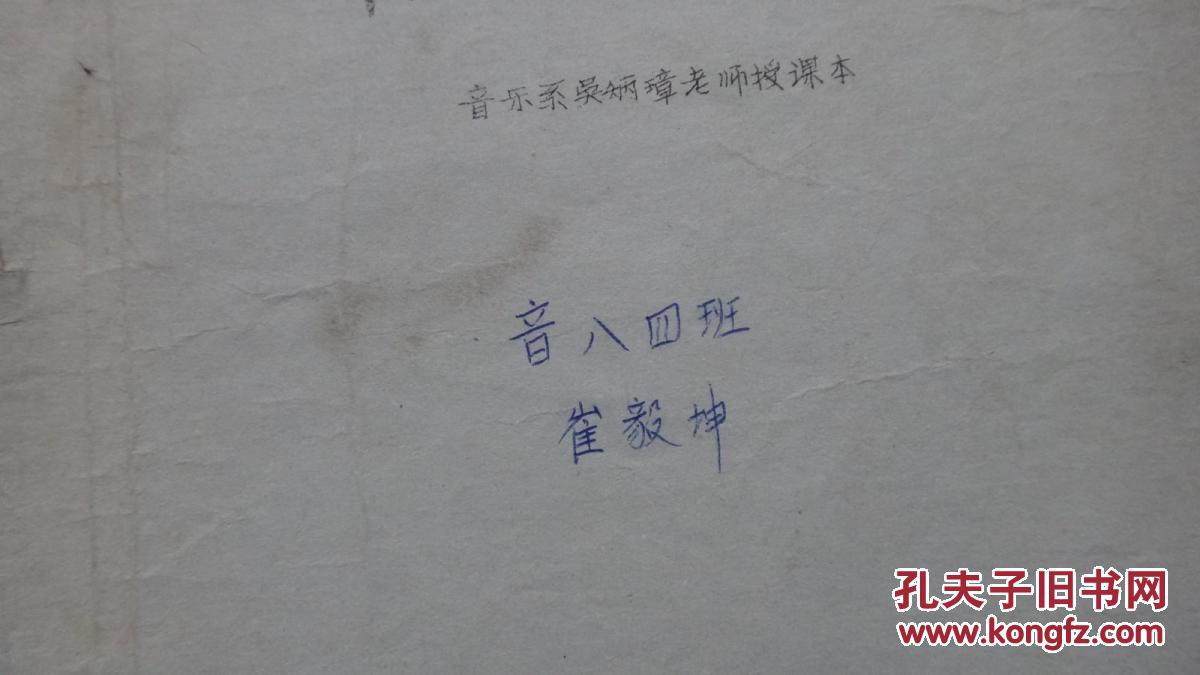 音乐系吴炳璋老师授课本
音八四班
崔毅坤
孔夫子旧书网
www.kongfz.com